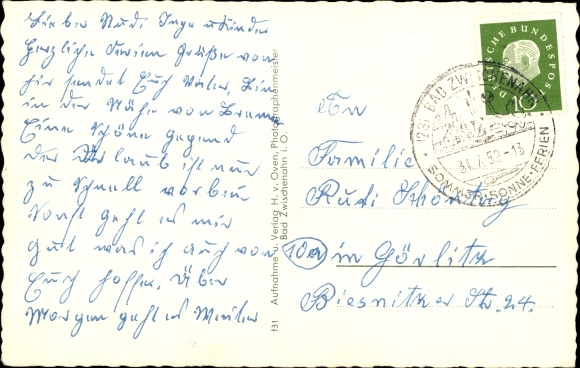 Lieber Rudi Inge u Kinder
Herzliche Ferien Grüße von
hir sendet Euch Vater, Bin
in der Nähe von Bremen
Eine Schöne gegend
der Urlaub ist nur
zu Schnell vorbei
Sonst geht es mir
gut was ich auch von
Euch hoffe, Über
Morgen geht es Weiter
t31 Aufnahme u. Verlag H. v. Oven, Photographenmeister
Bad Zwischenahn i. O.
DEUTSCHE BUNDESPOST
10
BAD ZWISCHENAHN
31.7.59-18
SOMMER-SONNE-FERIEN
An
Familie
Rudi Schönberg
10a in Görlitz
Biesnitzer Str. 24.